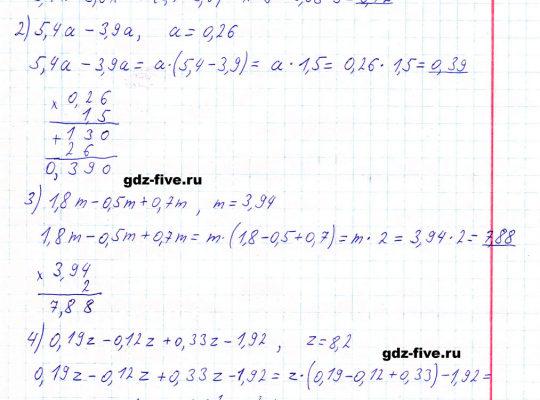 2) 5,4a - 3,9a, a = 0,26
5,4a - 3,9a = a·(5,4 - 3,9) = a · 1,5 = 0,26 · 1,5 = 0,39
x 0,26
1,5
+ 130
26
0,390
gdz-five.ru
3) 1,8m - 0,5m + 0,7m, m = 3,94
1,8m - 0,5m + 0,7m = m·(1,8 - 0,5 + 0,7) = m · 2 = 3,94 · 2 = 7,88
x 3,94
2
7,88
4) 0,19z - 0,12z + 0,33z - 1,92, z = 8,2
gdz-five.ru
0,19z - 0,12z + 0,33z - 1,92 = z·(0,19 - 0,12 + 0,33) - 1,92 =